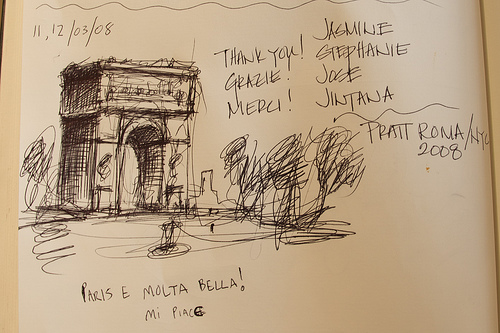 11, 12/03/08
JASMINE
THANK YOU! STEPHANIE
GRAZIE! JOSE
MERCI! JINTANA
PRATT ROMA/NYC
2008
PARIS E MOLTA BELLA!
MI PIACE